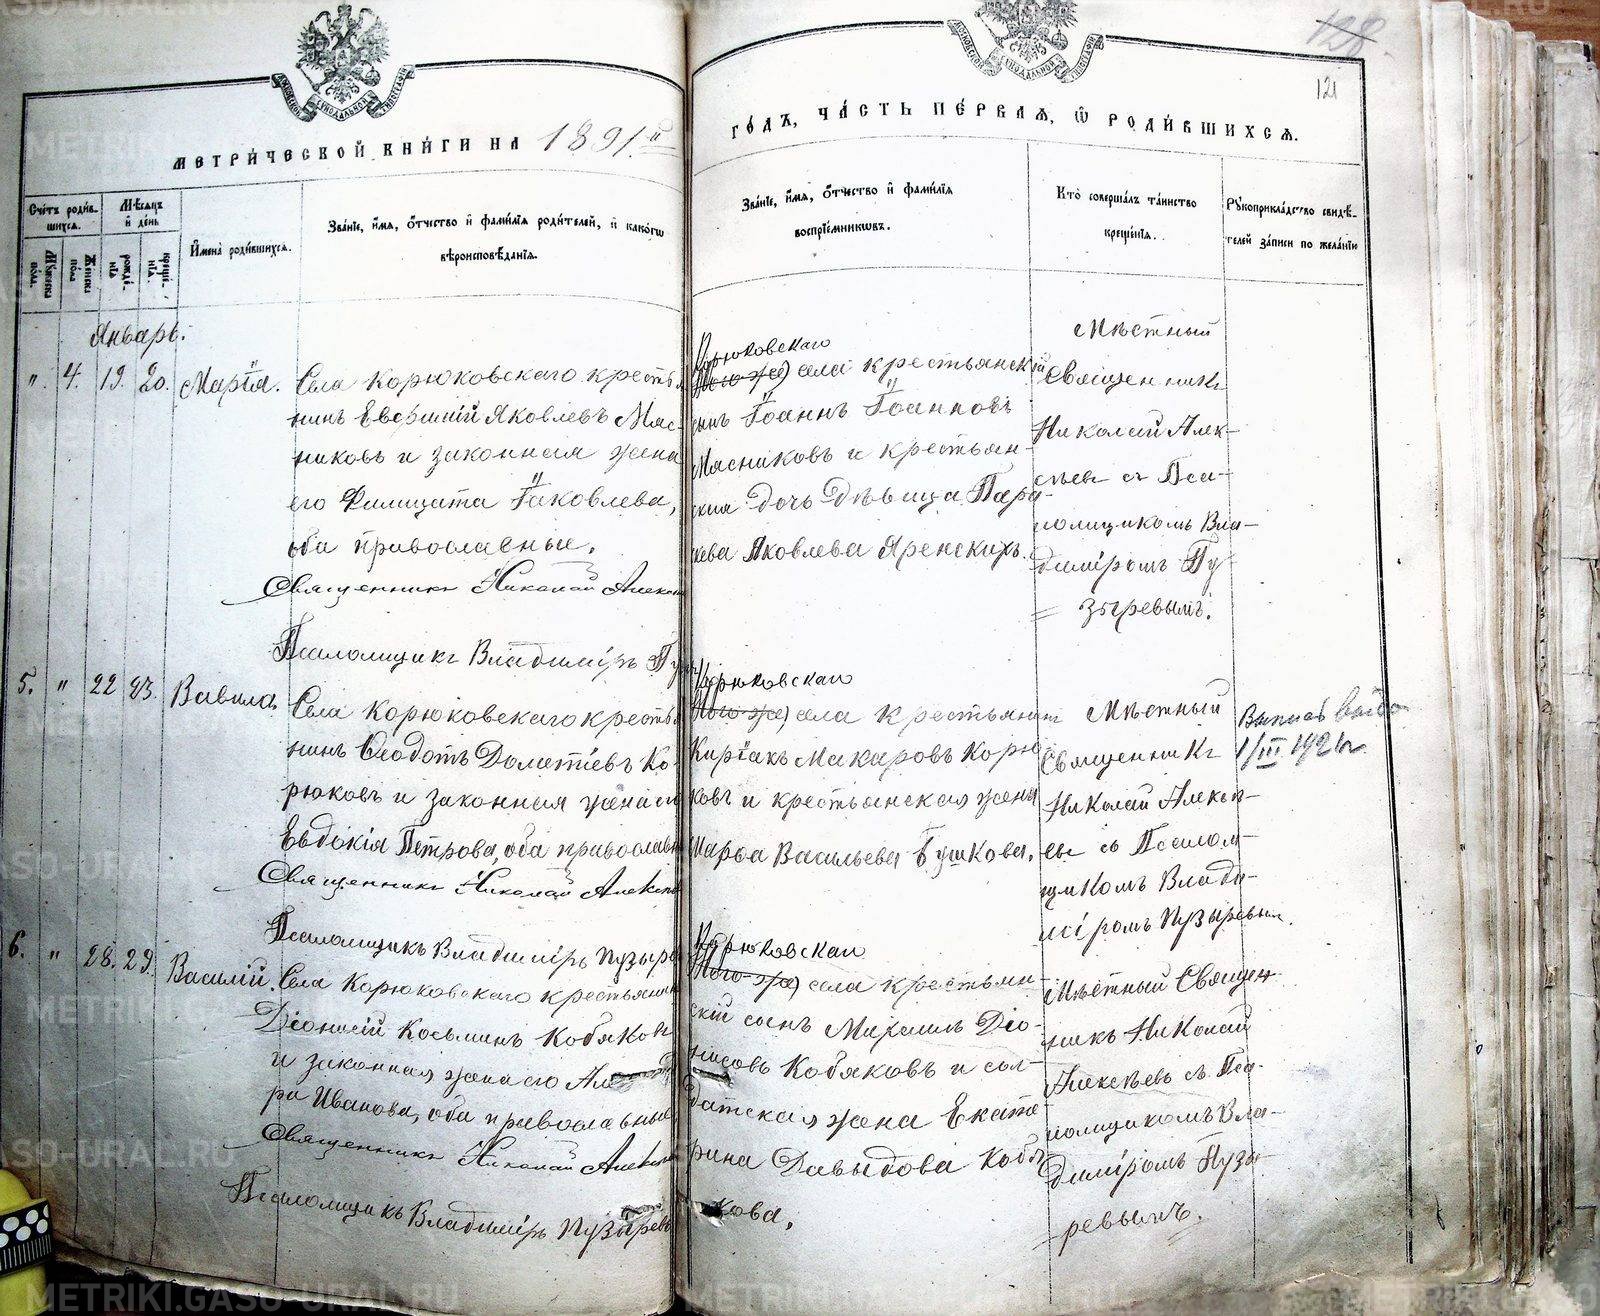 МЕТРИ́ЧЕСКОЙ КНИ́ГИ НА 1891й
ГО́ДЪ, ЧА́СТЬ ПЕ́РВАѦ, Ѽ РОДИ́ВШИХСѦ.
128
121
Сче́тъ роди́вшихсѧ.
Мужеска пола.
Женска пола
Мѣ́сѧцъ и де́нь
рожде́нїѧ
креще́нїѧ.
И́мена роди́вшихсѧ.
Зва́нїе, и́мѧ, о́тчество и фами́лїѧ роди́телей, и како́гѡ
вѣроисповѣ́данїѧ.
Зва́нїе, и́мѧ, о́тчество и фами́лїѧ
воспрїе́мниковъ.
Кто̀ соверша́лъ та́инство
креще́нїѧ.
Рꙋкоприкла́дство свидѣ́-
телей за́писи по жела́нїю
Январь.
" 4. 19. 20. Марія.
Села Корюковскаго крестья
нинъ Евфимій Яковлевъ Мяс-
никовъ и законная жена
его Филицата Іаковлева,
оба православные.
Священникъ Николай Алекс
Псаломщикъ Владиміръ Пу
Корюковскаго
(того-же) села крестьянскій
сынъ Іоаннъ Іоанновъ
Мясниковъ и крестьян-
ская дочь дѣвица Пара-
кева Яковлева Яренскихъ.
Мѣстный
Священникъ
Николай Алек-
сѣевъ съ Пса-
ломщикомъ Вла-
диміромъ Пу-
= зыревымъ.
5. " 22 23. Вавила.
Села Корюковскаго кресть
нинъ Ѳеодотъ Дометіевъ Ко-
рюковъ и законная жена его
Евдокія Петрова, оба православн
Священникъ Николай Алексѣ
Псаломщикъ Владиміръ Пузыр
Корюковскаго
(того-же) села крестьянинъ
Киріакъ Макаровъ Корю
ковъ и крестьянская жена
Марѳа Васильева Бушкова.
Мѣстный
Священникъ
Николай Алексѣ-
евъ съ Псалом-
щикомъ Влади-
міромъ Пузыревым.
1/III 1921г
6. " 28. 29. Василій.
Села Корюковскаго крестьянин
Діонисій Косьминъ Кобяковъ
и законная жена его Ал
ра Иванова, оба православные
Священникъ Николай Алексѣ
Псаломщикъ Владиміръ Пузырев
Корюковскаго
(того-же) села крестьян-
скій сынъ Михаилъ Діо-
нисовъ Кобяковъ и сол-
датская жена Екате-
рина Давыдова Кобя
кова.
Мѣстный Священ
никъ Николай
Алексѣевъ съ Пса-
ломщикомъ Вла-
диміромъ Пузы-
= ревымъ.
METRIKI.GASO-URAL.RU